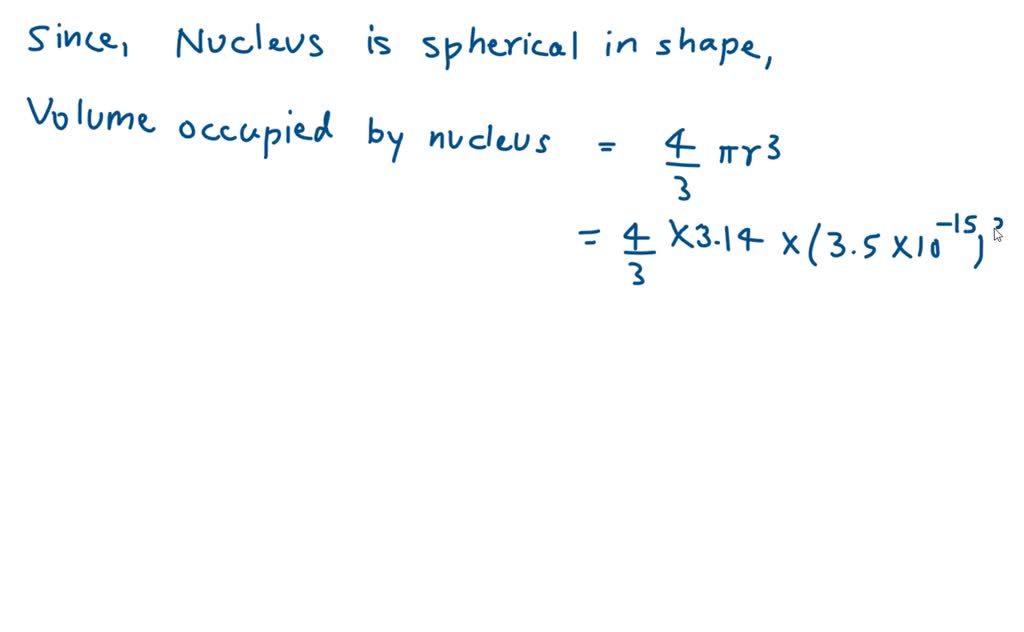 Since, Nucleus is spherical in shape,
Volume occupied by nucleus = 4/3 πr³
= 4/3 × 3.14 × (3.5 × 10⁻¹⁵)³